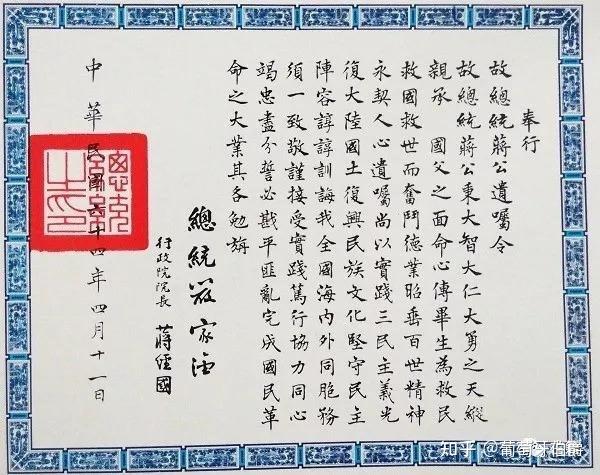 奉行
故總統蔣公遺囑令
故總統蔣公秉大智大仁大勇之天縱
親承　國父之面命心傳畢生為救民
救國救世而奮鬥德業昭垂百世精神
永契人心遺囑尚以實踐三民主義光
復大陸國土復興民族文化堅守民主
陣容諄諄訓誨我全國海內外同胞務
須一致敬謹接受實踐篤行協力同心
竭忠盡分誓必戡平匪亂完成國民革
命之大業其各勉旃
總統嚴家淦
行政院院長 蔣經國
中華民國六十四年四月十一日
總統之印
知乎 @葡萄牙伯爵